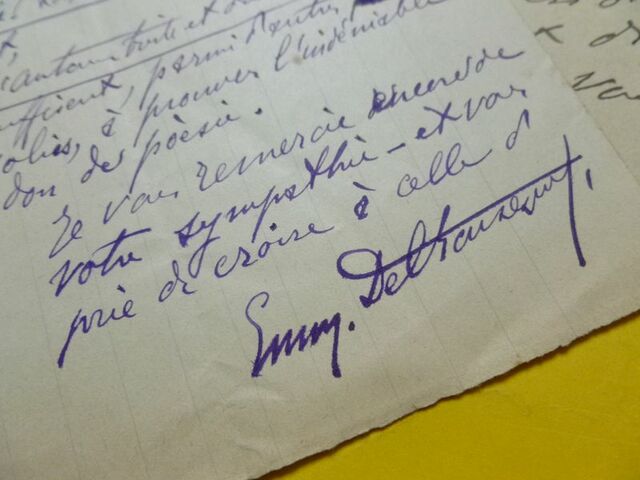 d'autom
suffisent, parmi d'autres
jolies, à prouver l'indéniable
don de poèsie.
Je vous remercie encore de
votre sympathie - et vous
prie de croire à celle d
Emm. Delbousquet.